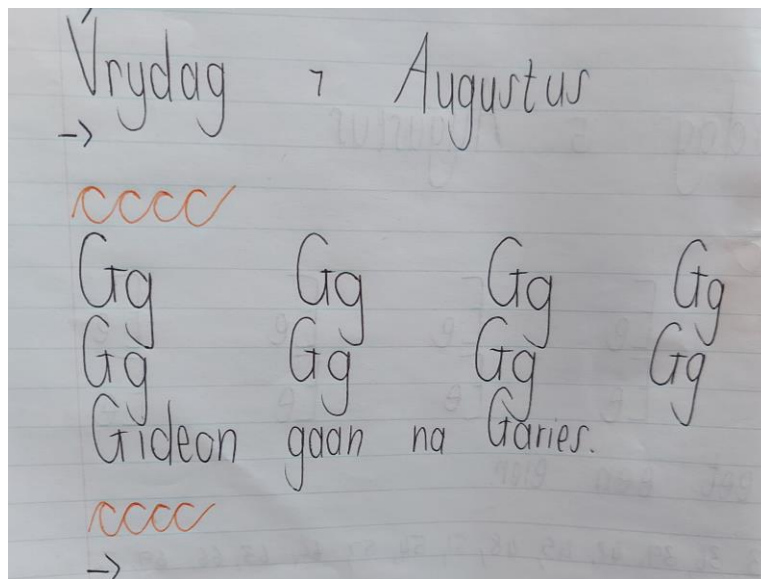 Vrydag 7 Augustus
→
cccc
Gg Gg Gg Gg
Gg Gg Gg Gg
Gideon gaan na Garies.
cccc
→